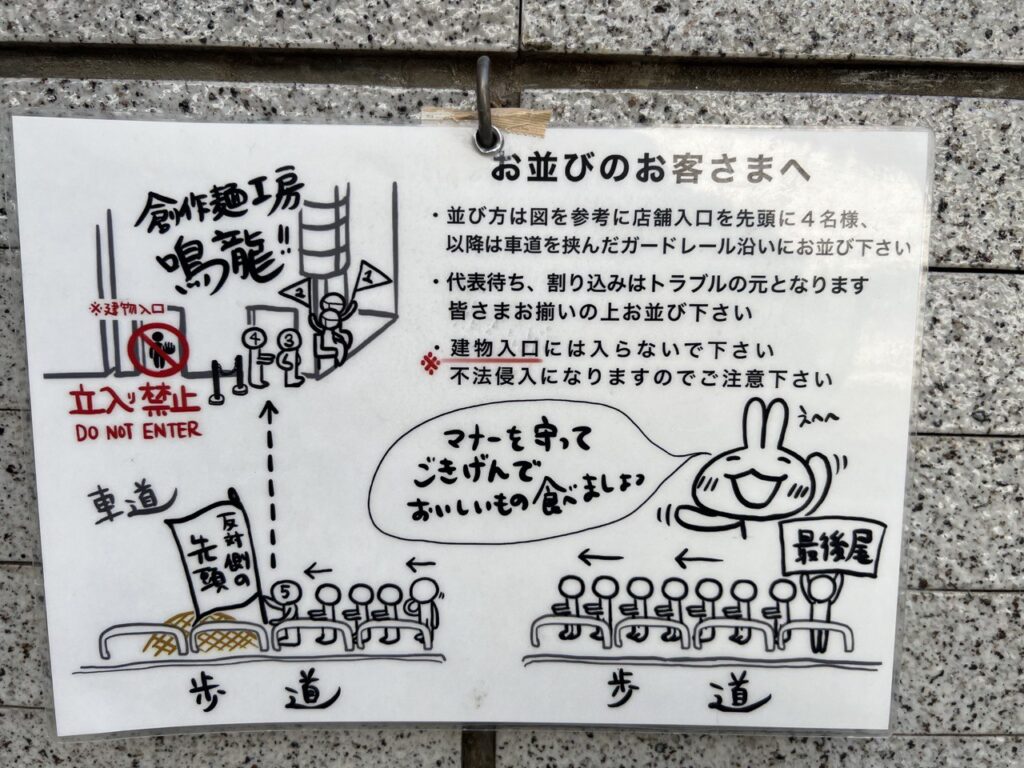 お並びのお客さまへ
・並び方は図を参考に店舗入口を先頭に4名様、
以降は車道を挟んだガードレール沿いにお並び下さい
・代表待ち、割り込みはトラブルの元となります
皆さまお揃いの上お並び下さい
・建物入口には入らないで下さい
※
不法侵入になりますのでご注意下さい
創作麺工房
鳴龍
1
2
※建物入口
④
③
立入り禁止
DO NOT ENTER
マナーを守って
ごきげんで
おいしいもの食べましょっ
え〜〜
車道
反対側の
先頭
⑤
最後尾
歩道
歩道